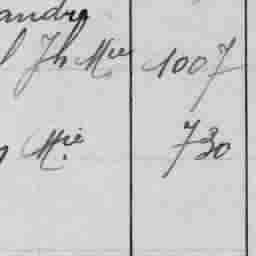 andre
l Jh Mie 1007
Mie 730